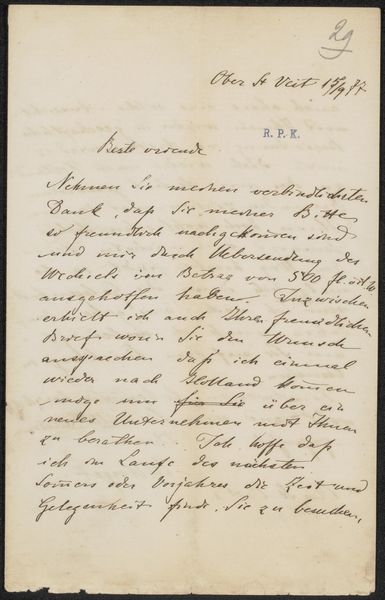 29
Ober St Veit 15/9 77
R.P.K.
Beste vriende
Nehmen Sie meinen verbindlichsten
Dank, daß Sie meiner Bitte
so freundlich nachgekom̅en sind
und mir durch Uebersendung des
Wechsels im Betrag von 500 fl. öst. W
ausgeholfen haben. Inzwischen
erhielt ich auch Ihren freundlichen
Brief worin Sie den Wunsch
aussprachen daß ich einmal
wieder nach Holland kom̅en
möge um für Sie über ein
neues Unternehmen mit Ihnen
zu berathen. Ich hoffe daß
ich im Laufe des nächsten
Som̅ers oder Vorjahres die Zeit und
Gelegenheit finde, Sie zu besuchen,